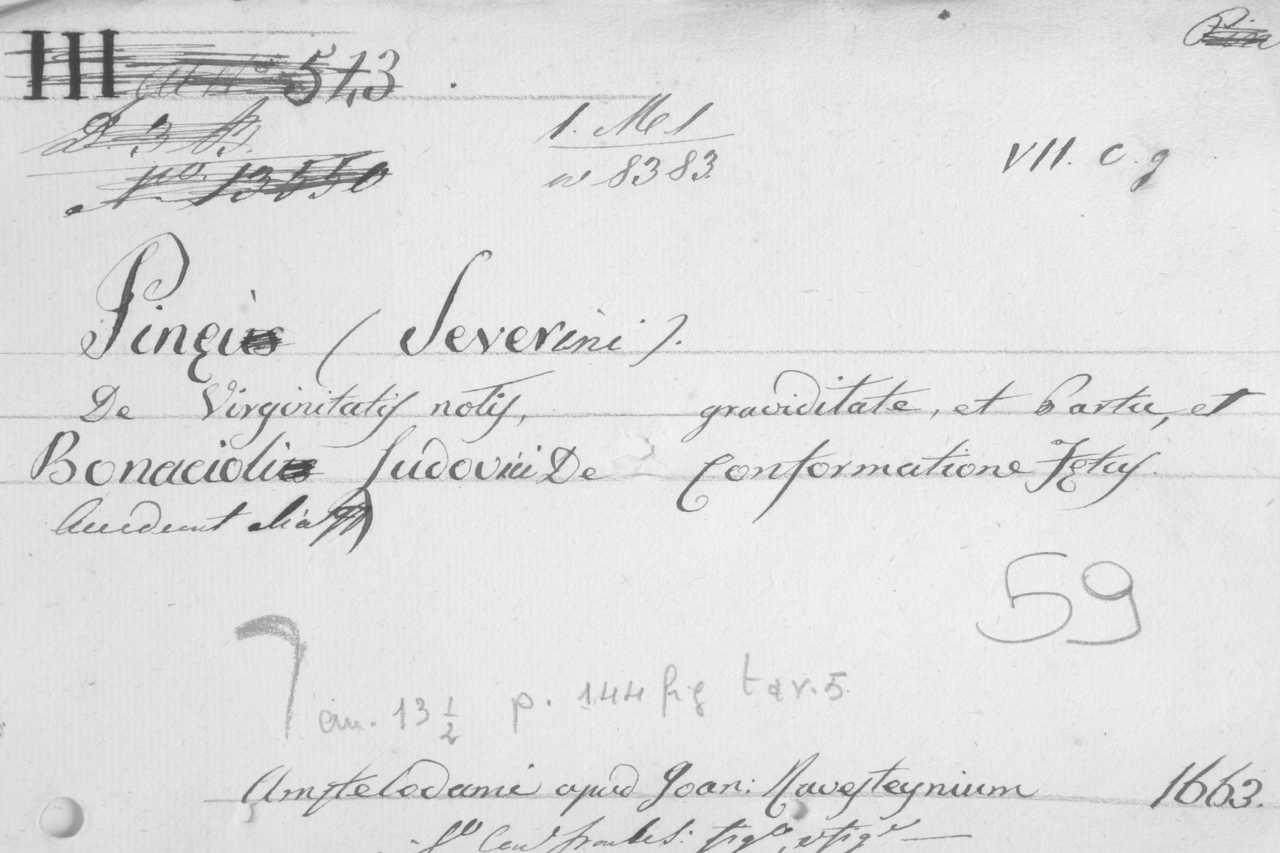 III 513
D. 3. B.
no. 13550
1. M e 1
n 8383
VII. c. g
Pinei (Severini).
De Virginitatis notis, graviditate, et Partu, et
Bonacioli Ludovici De Conformatione Fętus.
Accedunt alia
59
cm. 13 1/2 p. 144 fig tav. 5
Amstelodami apud Joan: Ravesteynium 1663.